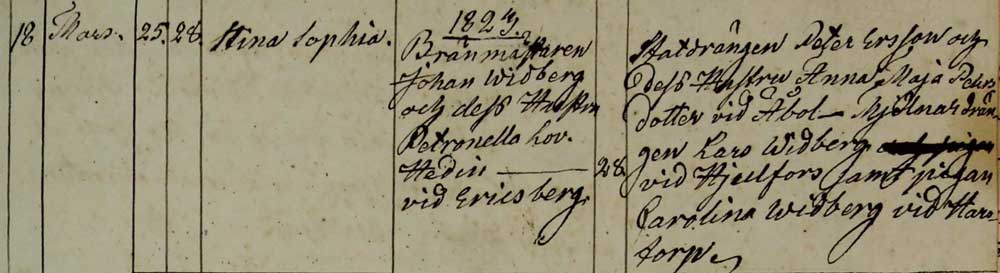 1827.
18 Mars. 25. 28. Stina Sophia.
Bränmästaren
Johan Widberg
och dess Hustru
Petronella Lov.
Hedin — 28.
vid Ericsberg.
Statdrängen Peter Ersson och
dess Hustru Anna Maja Peters
dotter vid Åbol — Mjölnar drän-
gen Lars Widberg
vid Hjelfors samt pigan
Carolina Widberg vid Hars-
torp.